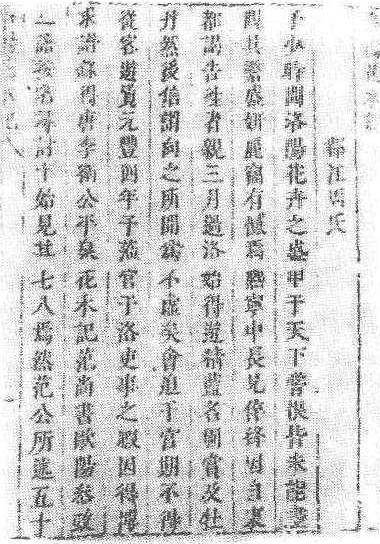 鄞江周氏
予少時聞洛陽花卉之盛甲于天下嘗恨皆未能盡
觀其繁盛妍麗竊有憾焉熙寧中長兄倅絳因自東
都謁告往省親三月過洛始得遊精藍名圃賞及牡
丹然後信謂向之所聞爲不虛矣會迫于官期不得
從容遊覽元豐四年予蒞官于洛吏事之暇因得博
求譜錄得唐李衛公平泉花木記范尚書歐陽叅政
二譜按名尋討十始見其七八焉然范公所述五十